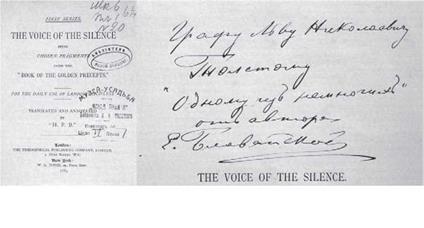 FIRST SERIES.
THE VOICE OF THE SILENCE
BEING
CHOSEN FRAGMENTS
FROM THE
"BOOK OF THE GOLDEN PRECEPTS."
FOR THE DAILY USE OF
TRANSLATED AND ANNOTATED
BY
"H. P. B."
London:
THE THEOSOPHICAL PUBLISHING COMPANY, LIMITED,
New York:
Графу Льву Николаевичу
Толстому
"Одному изъ немногихъ"
отъ автора
Е. Блаватской
THE VOICE OF THE SILENCE.